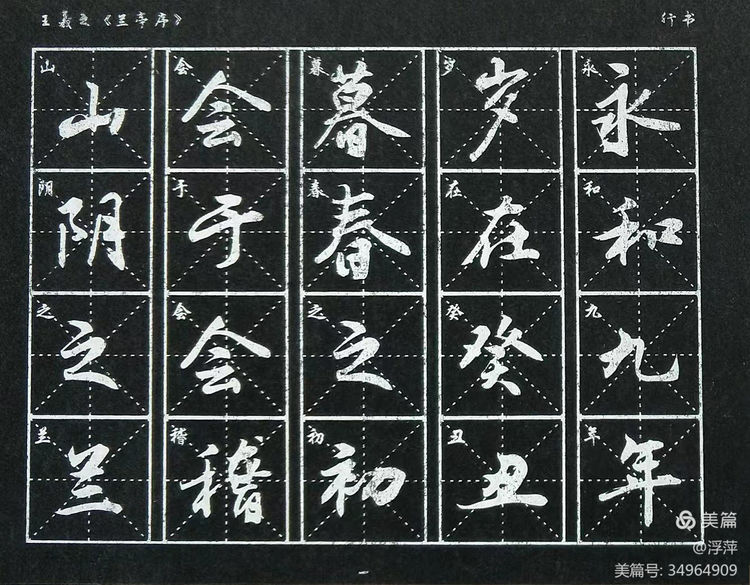 王羲之《兰亭序》
行书
永和九年
岁在癸丑
暮春之初
会于会稽
山阴之兰
永
和
九
年
岁
在
癸
丑
暮
春
之
初
会
于
会
稽
山
阴
之
兰
一
美篇
@浮萍
美篇号: 34964909